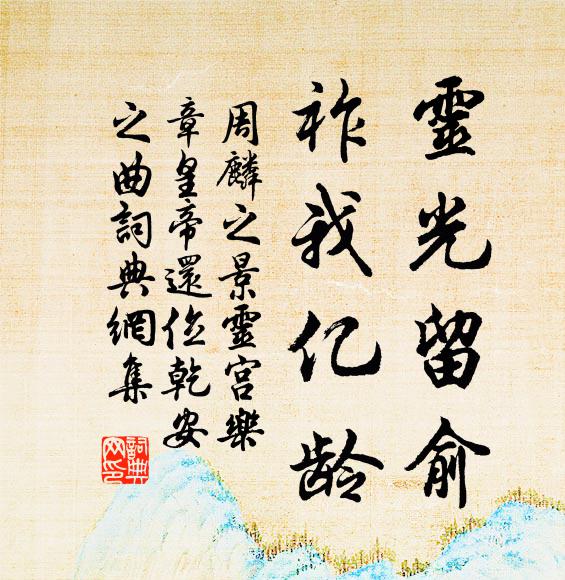 靈光留俞
祚我亿龄
周麟之景靈宫樂
章皇帝還位乾安
之曲詞典網集
詞典网印